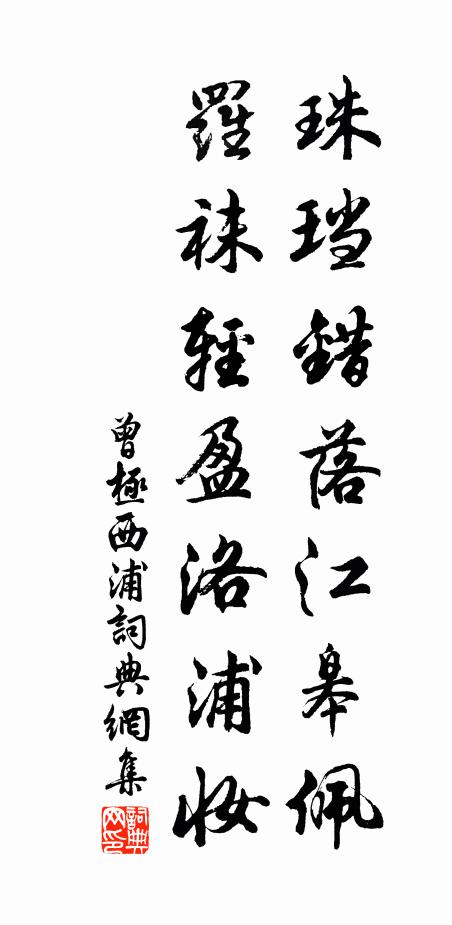 珠璫錯落江皋佩
羅袜輕盈洛浦妝
曾極西浦詞典網集
詞典网印